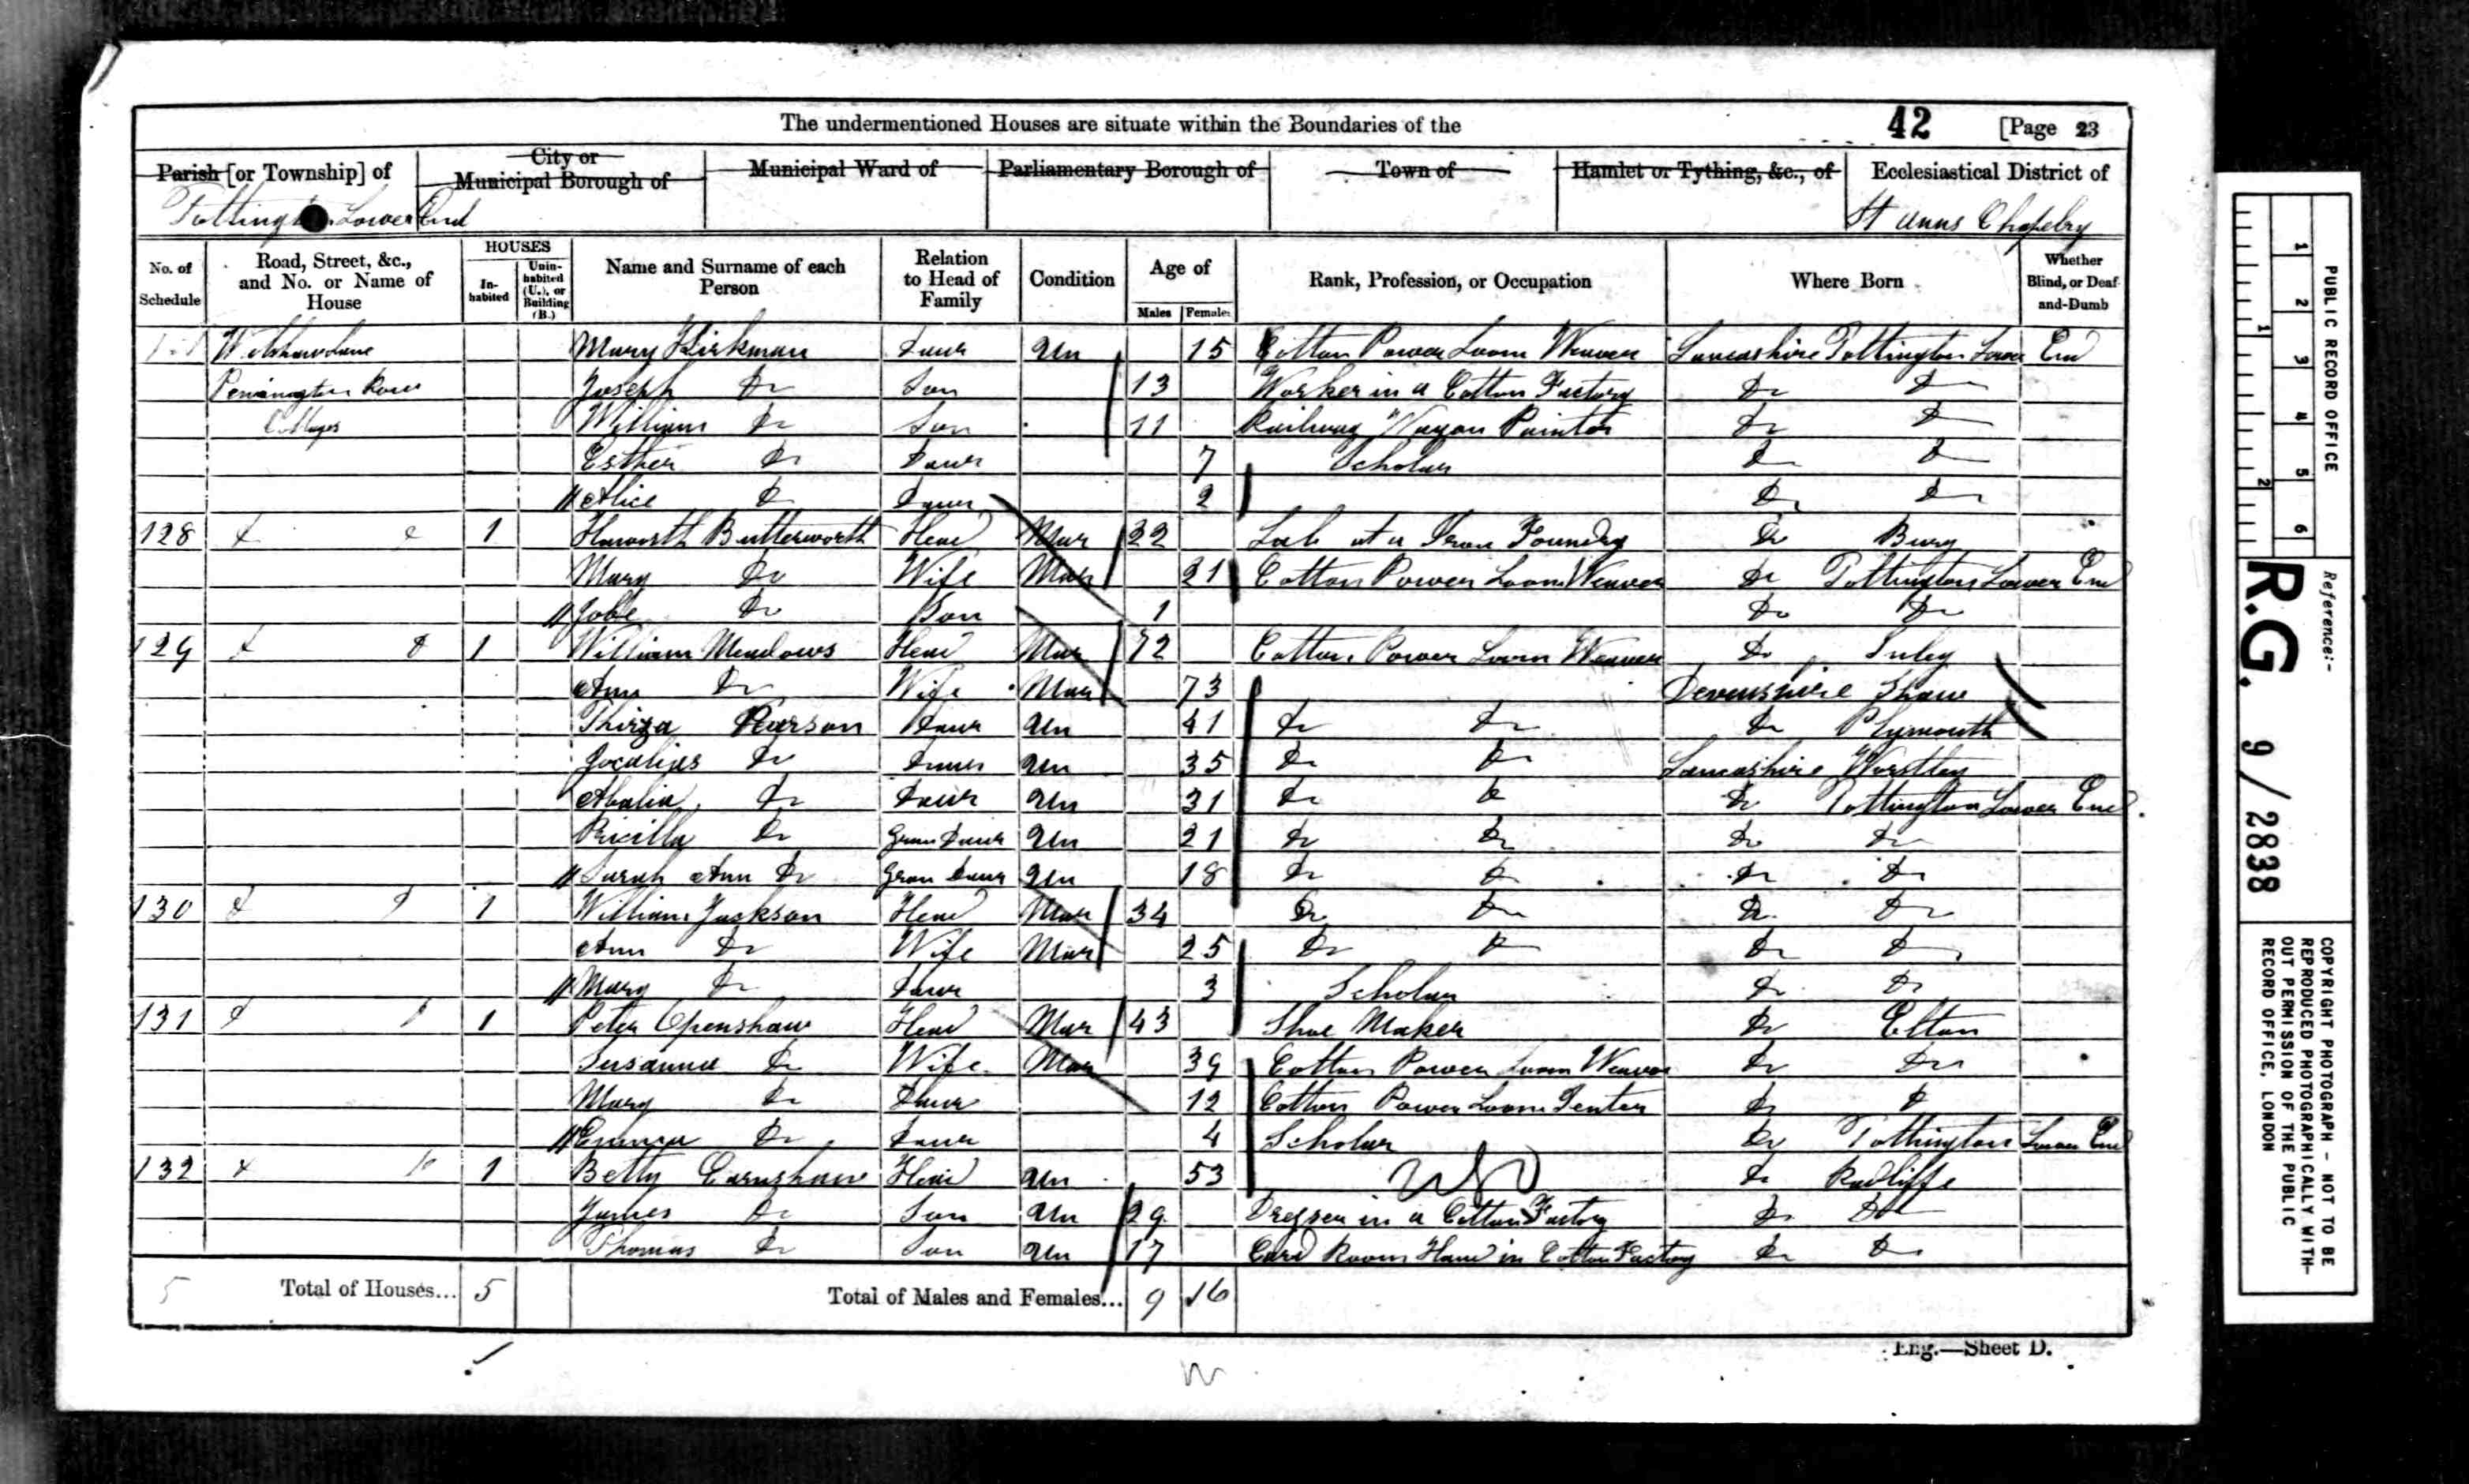 The undermentioned Houses are situate within the Boundaries of the 42 [Page 23
Parish [or Township] of City or Municipal Borough of Municipal Ward of Parliamentary Borough of Town of Hamlet or Tything, &c., of Ecclesiastical District of
Tottington Lower End St Anns Chapelry
No. of Schedule Road, Street, &c., and No. or Name of House HOUSES In-habited Unin-habited (U.), or Building (B.) Name and Surname of each Person Relation to Head of Family Condition Age of Males Females Rank, Profession, or Occupation Where Born Whether Blind, or Deaf-and-Dumb
Mary Kirkman Daur Un 15 Cotton Power Loom Weaver Lancashire Tottington Lower End
Pennington Row Joseph Do Son 13 Worker in a Cotton Factory Do Do
Cottages William Do Son 11 Railway Wagon Painter Do Do
Esther Do Daur 7 Scholar Do Do
Alice Do Daur 2 Do Do
128 Do Do 1 Howorth Butterworth Head Mar 22 Lab at a Iron Foundry Do Bury
Mary Do Wife Mar 21 Cotton Power Loom Weaver Do Tottington Lower End
Jobe Do Son 1 Do Do
129 Do Do 1 William Meadows Head Mar 72 Cotton Power Loom Weaver Do
Ann Do Wife Mar 73 Devenshire Shaw
Thirza Pearson Daur Un 41 Do Do Do Plymouth
Do Daur Un 35 Do Do Lancashire Worstley
Do Daur Un 31 Do Do Do Tottington Lower End
Pricilla Do Gran Daur Un 21 Do Do Do Do
Sarah Ann Do Gran Daur Un 18 Do Do Do Do
130 Do Do 1 William Jackson Head Mar 34 Do Do Do Do
Ann Do Wife Mar 25 Do Do Do Do
Mary Do Daur 3 Scholar Do Do
131 Do Do 1 Peter Openshaw Head Mar 43 Shoe Maker Do Elton
Susanna Do Wife Mar 39 Cotton Power Loom Weaver Do Do
Mary Do Daur 12 Cotton Power Loom Tenter Do Do
Emma Do Daur 4 Scholar Do Tottington Lower End
132 Do Do 1 Betty Earnshaw Head Un 53 Do Radliffe
James Do Son Un 29 Dresser in a Cotton Factory Do Do
Thomas Do Son Un 17 Card Room Hand in Cotton Factory Do Do
5 Total of Houses... 5 Total of Males and Females... 9 16
Eng.—Sheet D.
1 2 3 4 5 6
1 2
PUBLIC RECORD OFFICE
Reference:-
R.G. 9/2838
COPYRIGHT PHOTOGRAPH - NOT TO BE
REPRODUCED PHOTOGRAPHICALLY WITH-
OUT PERMISSION OF THE PUBLIC
RECORD OFFICE, LONDON